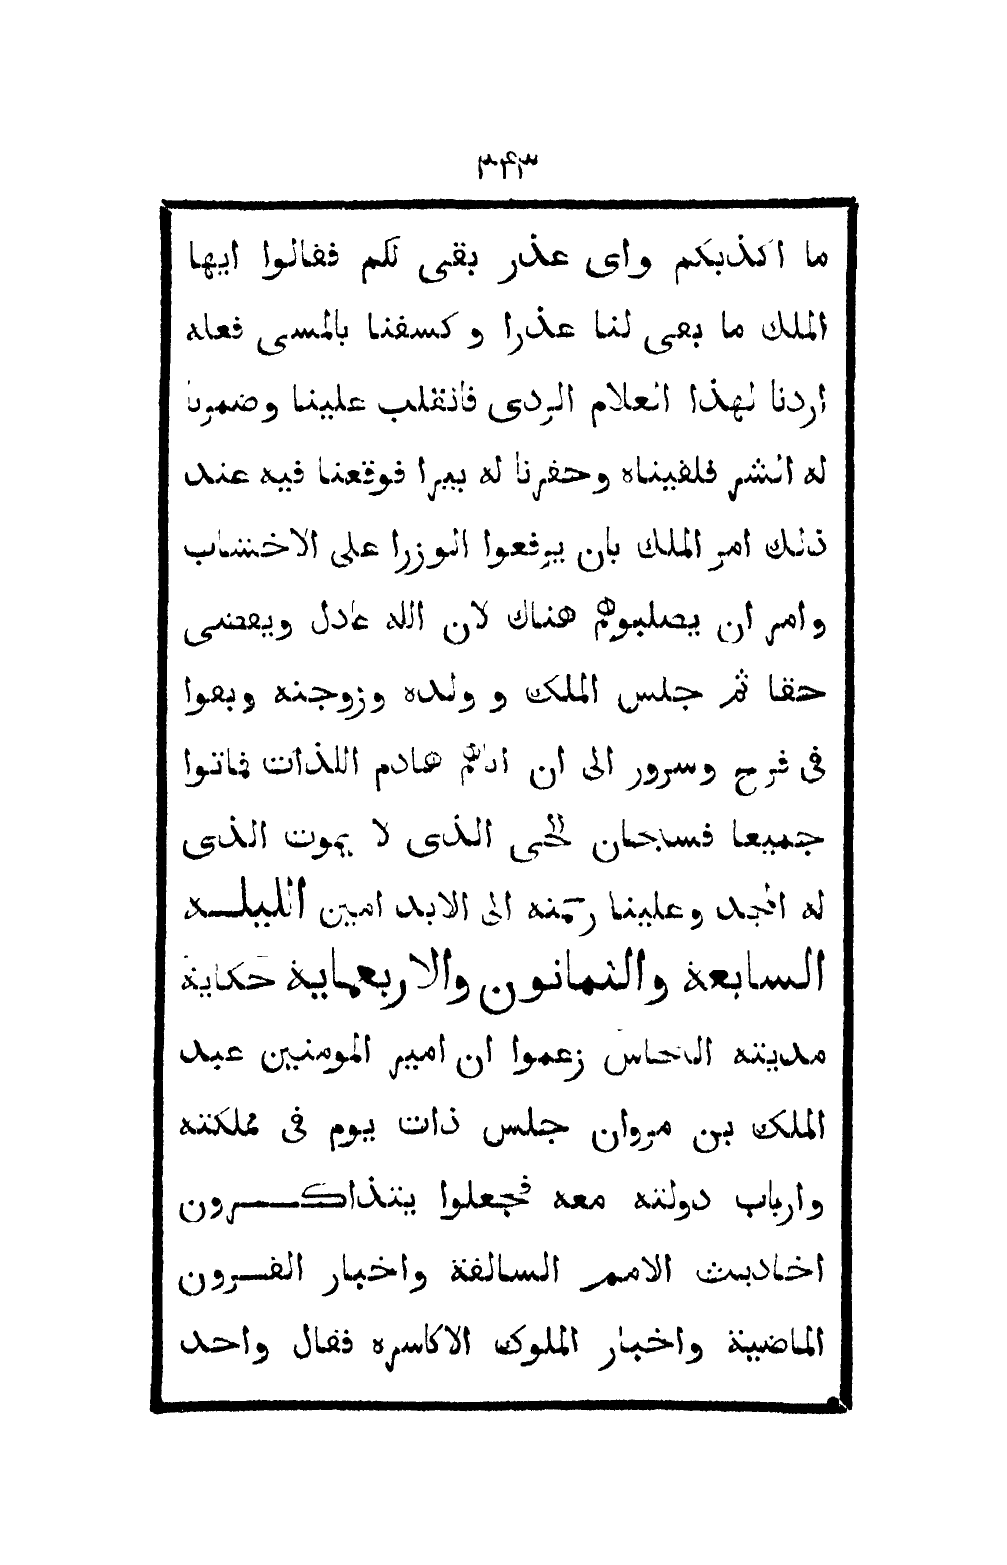 ٣٤٣
ما اكذبكم واى عذر بقى لكم فقالوا ايها
الملك ما بقى لنا عذرا وكسفنا بالمسى فعله
اردنا لهذا الغلام الردى فانقلب علينا وضمرنا
له الشر فلقيناه وحفرنا له بيرا فوقعنا فيه عند
ذلك امر الملك بان يرفعوا الوزرا على الاخشاب
وامر ان يصلبوهم هناك لان الله عادل ويقضى
حقا ثم جلس الملك و ولده وزوجته وبقوا
فى فرح وسرور الى ان اتاهم هادم اللذات فماتوا
جميعا فسبحان الحى الذى لا يموت الذى
له المجد وعلينا رحمته الى الابد امين الليلـــة
السابعة والثمانون والاربعماية حكاية
مدينته النحاس زعموا ان امير المومنين عبد
الملك بن مروان جلس ذات يوم فى مملكته
وارباب دولته معه فجعلوا يتذاكـــرون
احاديث الامم السالفة واخبار القــرون
الماضية واخبار الملوك الاكاسره فقال واحد